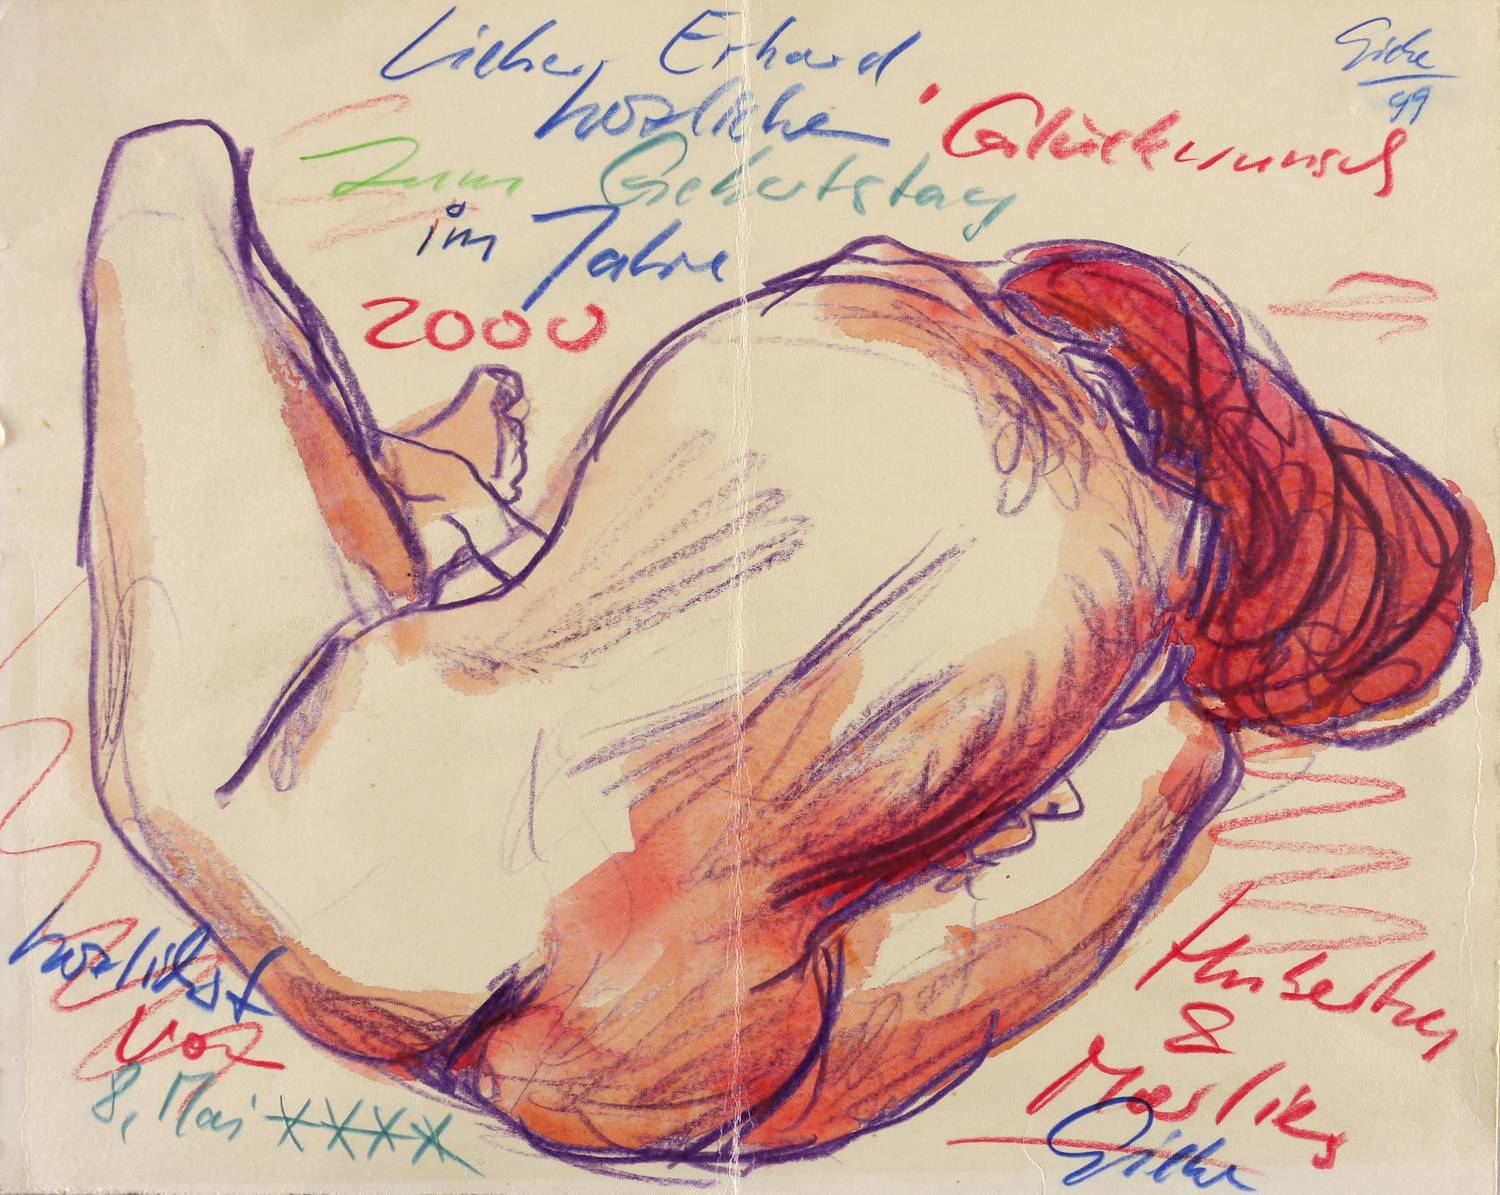 Lieber Erhard
herzlichen Glückwunsch
zum Geburtstag
im Jahre
2000
Giebe
99
herzlichst
vor
8. Mai xxxx
Hubertus
&
Marlies
Giebe